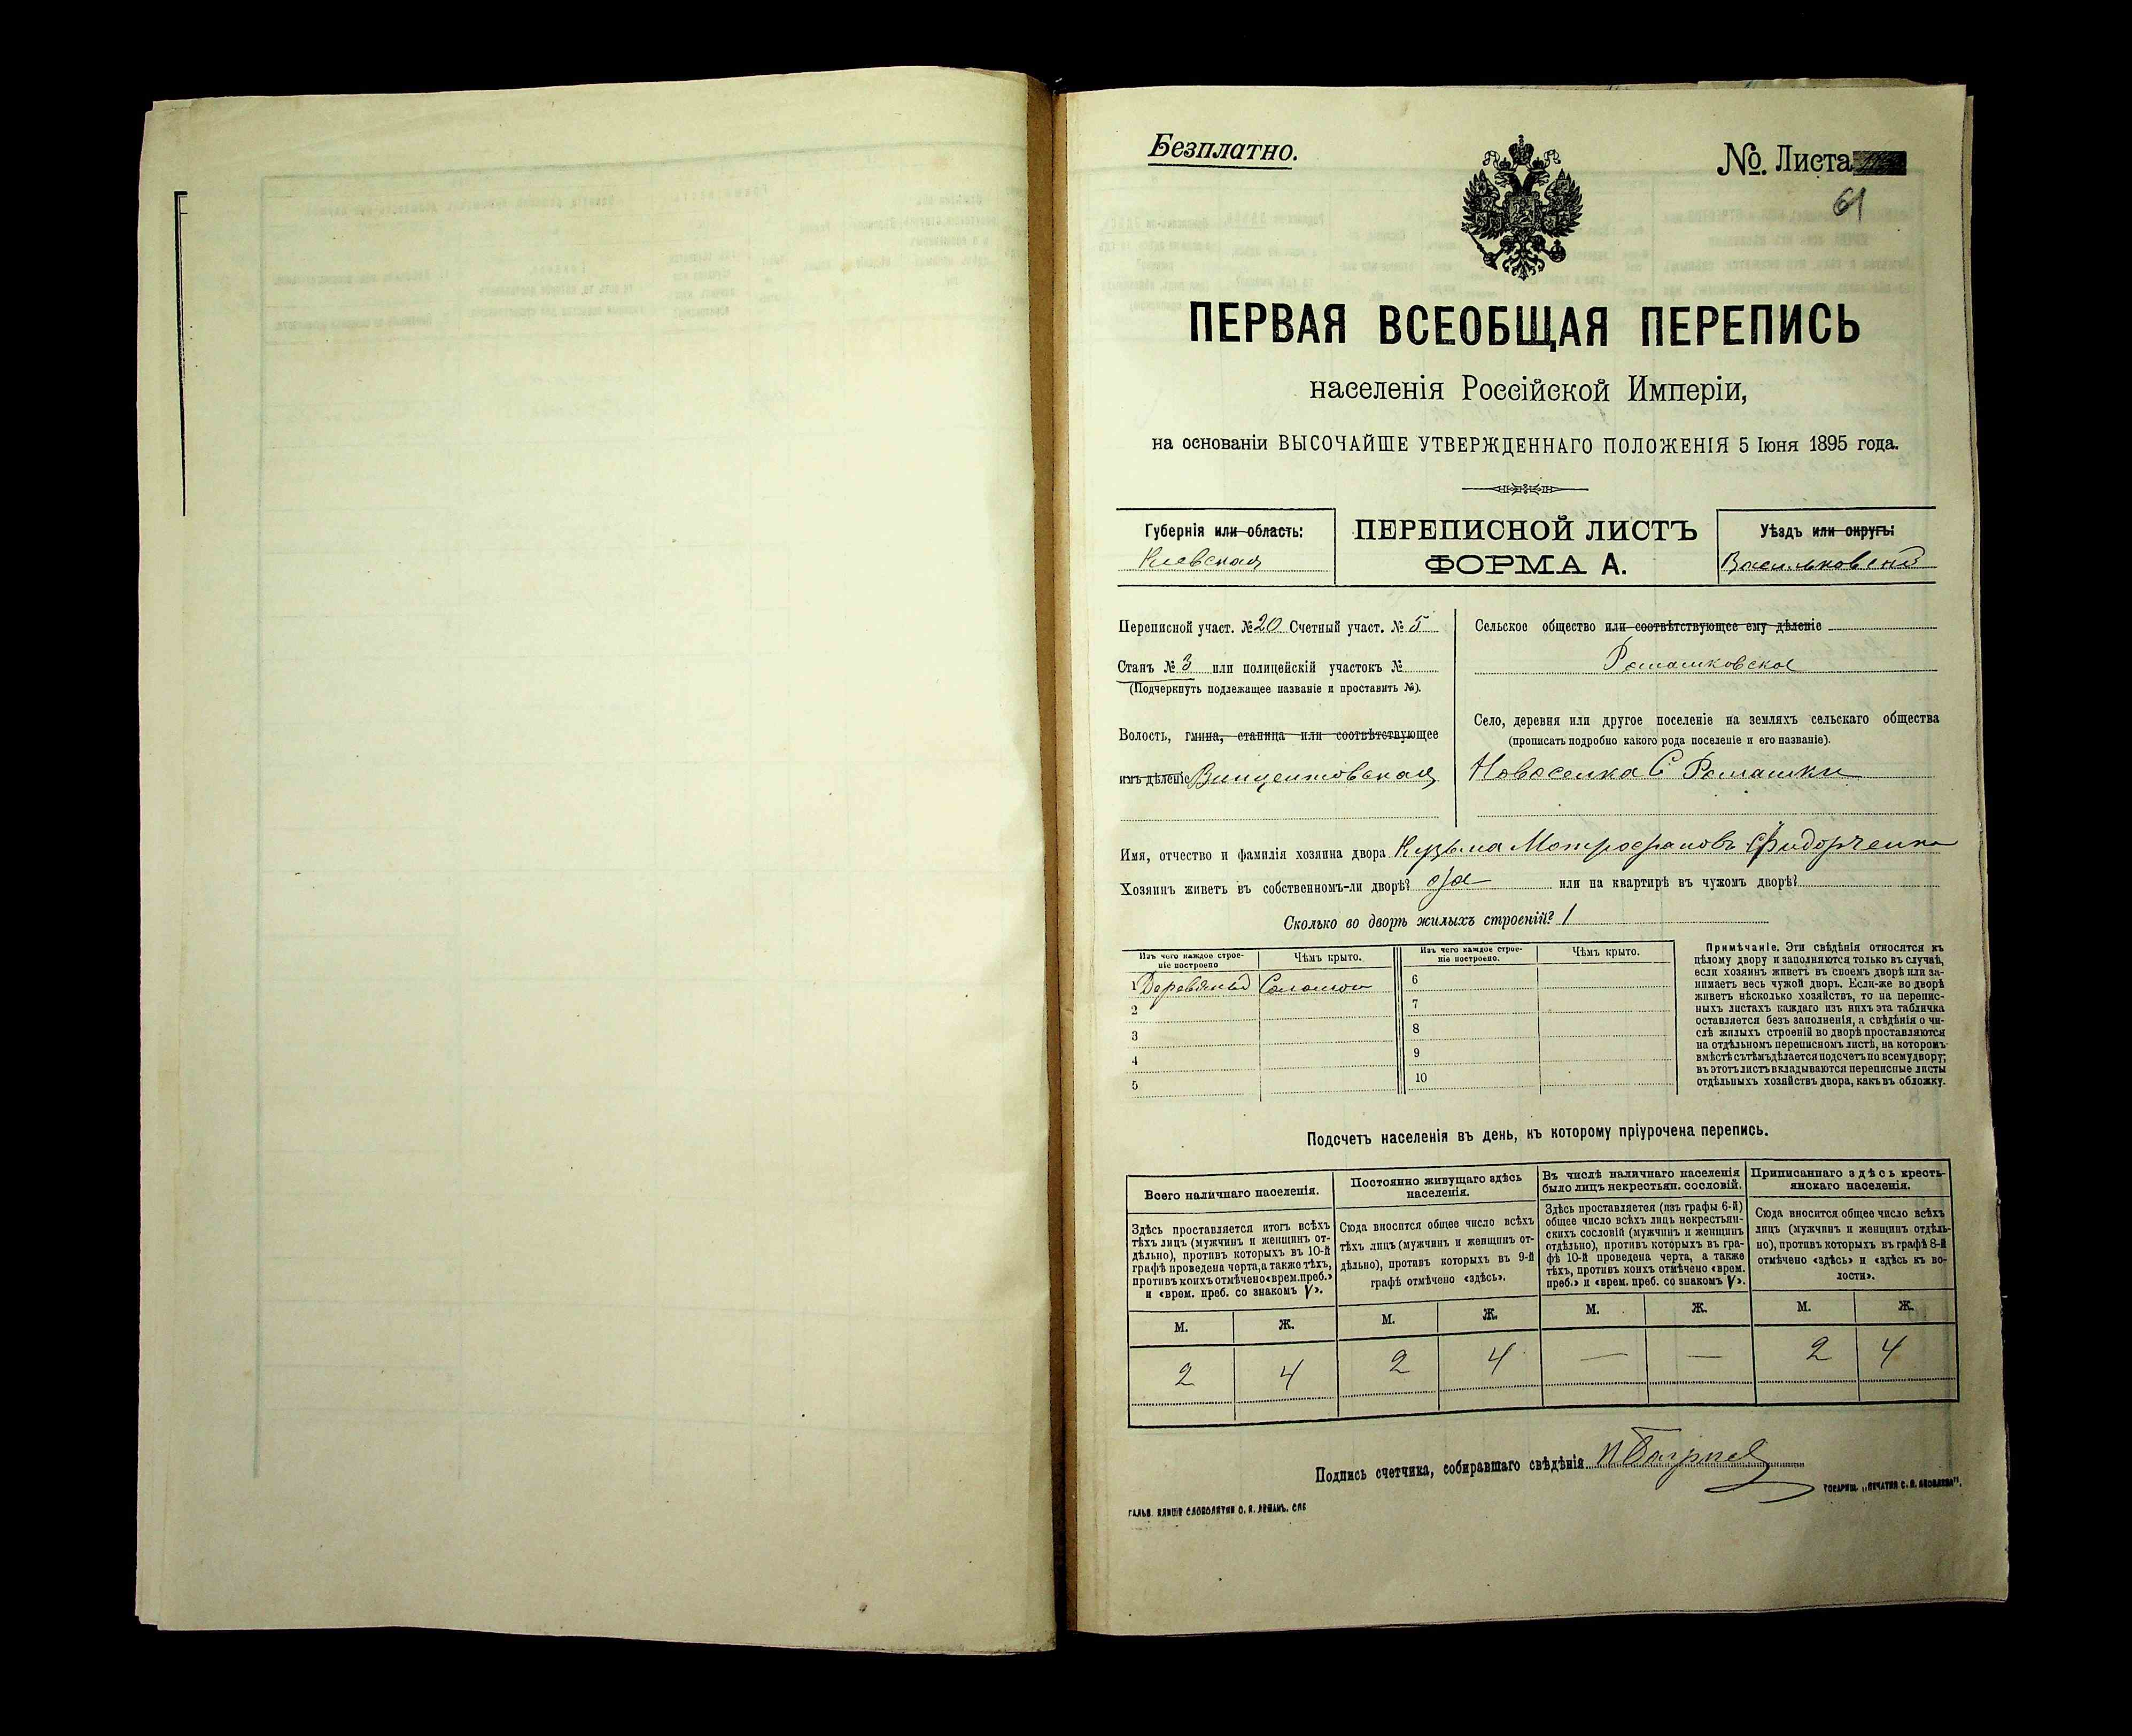 Безплатно.
№. Листа
61
ПЕРВАЯ ВСЕОБЩАЯ ПЕРЕПИСЬ
населенія Россійской Имперіи,
на основаніи ВЫСОЧАЙШЕ УТВЕРЖДЕННАГО ПОЛОЖЕНІЯ 5 Іюня 1895 года.
Губернія или область:
Киевская
ПЕРЕПИСНОЙ ЛИСТЪ
ФОРМА А.
Уѣздъ или округъ:
Васильковский
Переписной участ. № 20 Счетный участ. № 5
Станъ № 3 или полицейскій участокъ №
(Подчеркнуть подлежащее названіе и проставить №).
Волость, гмина, станица или соотвѣтствующее
имъ дѣленіе Винцентовская
Сельское общество или соотвѣтствующее ему дѣленіе
Ромашковское
Село, деревня или другое поселеніе на земляхъ сельскаго общества
(прописать подробно какого рода поселеніе и его названіе).
Новоселка С Ромашки
Имя, отчество и фамилія хозяина двора Кузьма Митрофановъ Фидорченко
Хозяинъ живетъ въ собственномъ-ли дворѣ? да или на квартирѣ въ чужомъ дворѣ?
Сколько во дворѣ жилыхъ строеній? 1
Изъ чего каждое строе-
ніе построено
Чѣмъ крыто.
Изъ чего каждое строе-
ніе построено.
Чѣмъ крыто.
1 Деревяный Соломой 6
2 7
3 8
4 9
5 10
Примѣчаніе. Эти свѣдѣнія относятся къ
цѣлому двору и заполняются только въ случаѣ,
если хозяинъ живетъ въ своемъ дворѣ или за-
нимаетъ весь чужой дворъ. Если-же во дворѣ
живетъ нѣсколько хозяйствъ, то на перепис-
ныхъ листахъ каждаго изъ нихъ эта табличка
оставляется безъ заполненія, а свѣдѣнія о чи-
слѣ жилыхъ строеній во дворѣ проставляются
на отдѣльномъ переписномъ листѣ, на которомъ
вмѣстѣ съ тѣмъ дѣлается подсчетъ по всему двору;
въ этотъ листъ вкладываются переписные листы
отдѣльныхъ хозяйствъ двора, какъ въ обложку.
Подсчетъ населенія въ день, къ которому пріурочена перепись.
Всего наличнаго населенія.
Здѣсь проставляется итогъ всѣхъ
тѣхъ лицъ (мужчинъ и женщинъ от-
дѣльно), противъ которыхъ въ 10-й
графѣ проведена черта, а также тѣхъ,
противъ коихъ отмѣчено «врем. преб.»
и «врем. преб. со знакомъ V».
Постоянно живущаго здѣсь
населенія.
Сюда вносится общее число всѣхъ
тѣхъ лицъ (мужчинъ и женщинъ от-
дѣльно), противъ которыхъ въ 9-й
графѣ отмѣчено «здѣсь».
Въ числѣ наличнаго населенія
было лицъ некрестьян. сословій.
Здѣсь проставляется (изъ графы 6-й)
общее число всѣхъ лицъ некрестьян-
скихъ сословій (мужчинъ и женщинъ
отдѣльно), противъ которыхъ въ гра-
фѣ 10-й проведена черта, а также
тѣхъ, противъ коихъ отмѣчено «врем.
преб.» и «врем. преб. со знакомъ V».
Приписаннаго здѣсь кресть-
янскаго населенія.
Сюда вносится общее число всѣхъ
лицъ (мужчинъ и женщинъ отдѣль-
но), противъ которыхъ въ графѣ 8-й
отмѣчено «здѣсь» и «здѣсь къ во-
лости».
М. Ж. М. Ж. М. Ж. М. Ж.
2 4 2 4 — — 2 4
Подпись счетчика, собиравшаго свѣдѣнія
ГАЛЬВ. КЛИШЕ СЛОВОЛИТНИ О. И. ЛЕМАНЪ. СПБ
ТОВАРИЩ. „ПЕЧАТНЯ С. П. ЯКОВЛЕВА".